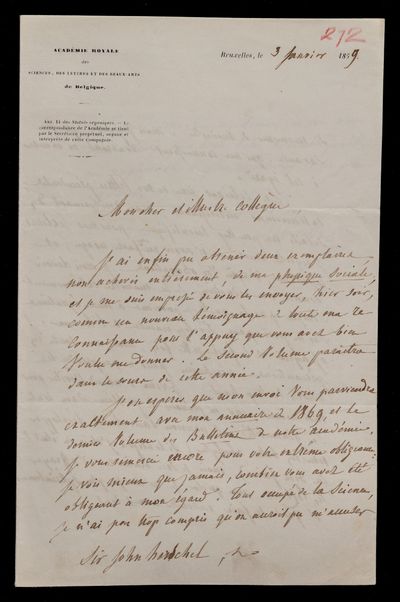 272
ACADÉMIE ROYALE
des
SCIENCES, DES LETTRES ET DES BEAUX-ARTS
de Belgique.
Bruxelles, le 3 Janvier 1869.
Art. 11 des Statuts organiques. — La
correspondance de l'Académie se tient
par le Secrétaire perpétuel, organe et
interprète de cette Compagnie.
Mon cher et illustre collègue,
J'ai enfin pu obtenir deux exemplaires,
non achevés entièrement, de ma physique sociale,
et je me suis empressé de vous les envoyer, hier soir,
comme un nouveau témoignage de toute ma re
connaissance pour l'appui que vous avez bien
voulu me donner. Le second volume paraîtra
dans le cours de cette année.
J'ose espérer que mon envoi vous parviendra
exactement avec mon annuaire de 1869 et le
dernier volume des Bulletins de notre académie.
Je vous remercie encore pour votre extrême obligeance,
je vois mieux que jamais, combien vous avez été
obligeant à mon égard. Tout occupé de la Science,
je n'ai pas trop compris qu'on auroit pu m'accuser
Sir John Herschel,